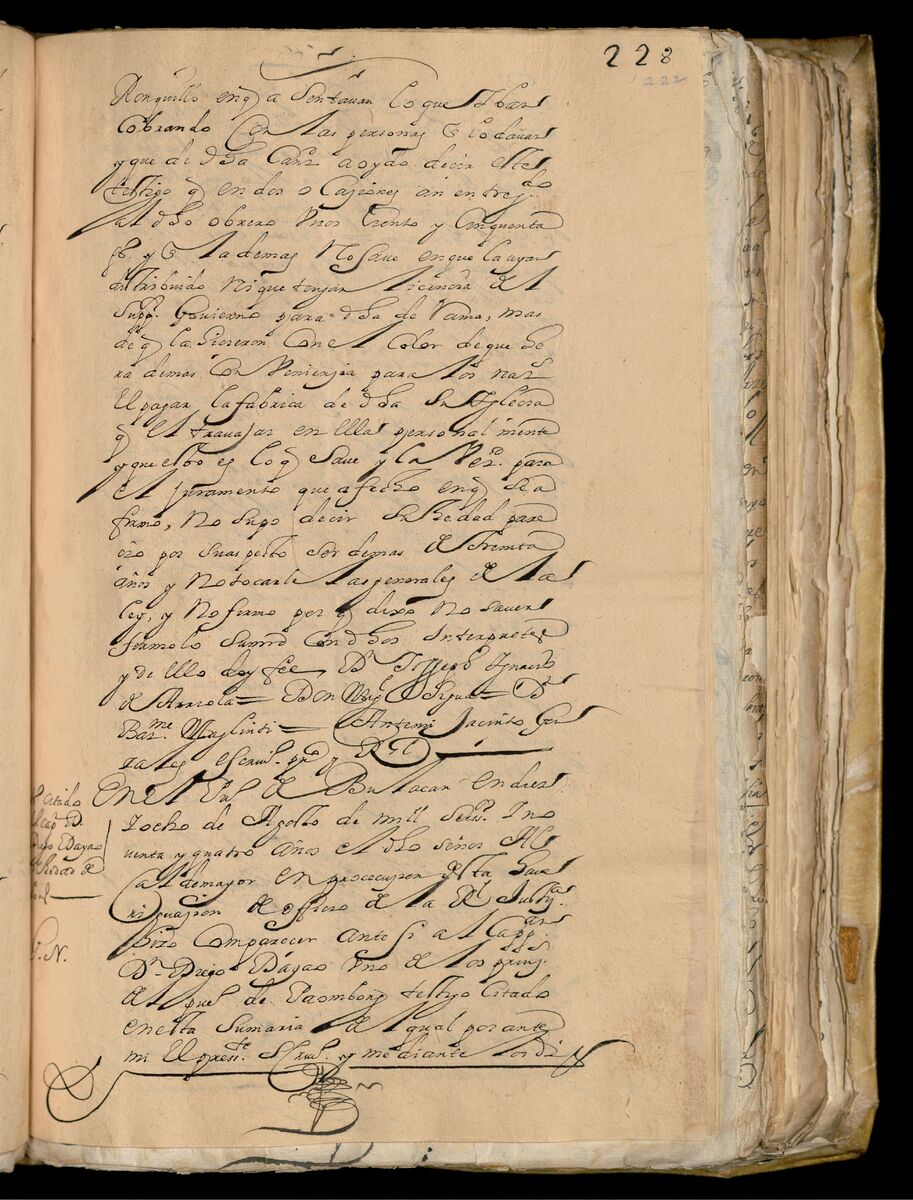 228
222
Ronquillo enq̃ a sentauan lo que Yban
Cobrando Con las personas q̃ lo dauan
y que de dha Cant. a oydo decir este
testigo q̃ en dos o Cajiones an entreg.do
Al dho obrero Vnos Ciento y Cinquenta
ps. y q̃ la demas No saue en que la ayan
distribuido Ni que tengan licencia del
Supr. Gouierno para dha de rama, mas
de q̃ la hicieron Con el Color de que he
ra demas Con Veniengia para los nat.s
El pagar la fabrica de dha Sta Yglecia
q̃ el trauajar en ella personal mente
y que esto es lo q̃ saue y la Ver.d para
el juramento que a fecho enq̃ se a
firmo, No supo decir su hedad pare
cio por su aspecto ser demas de treinta
años y No tocarle las generales de la
ley, y No firmo por q̃ dixo No sauer
firmolo su mrd Con dhos Interpretes
y de ello doy fee, Dn Joseph Ignacio
de Arriola = Don Mig.l Sigua = Dn
Bar.me Muglinti = Antemi Jacinto Gon
sales escriu.o pu.co y R.l
El citado
el cap.n D.
Diego Dayao
En el Pu.o de Bulacan en diez
Y ocho de Agosto de mill setes. Y no
uenta y quatro años el dho señor Al
cal de mayor en prococucion desta Haue
riguacion de officio de la R.l Justt.a
hizo Comparecer ante si al Capp.an
Dn. Diego Dayao Vno de los prinz.s
del puel. de Paombong testigo Citado
enesta Sumaria del qual por ante
mi el press.te Scriu.o y mediante los di
T. N.